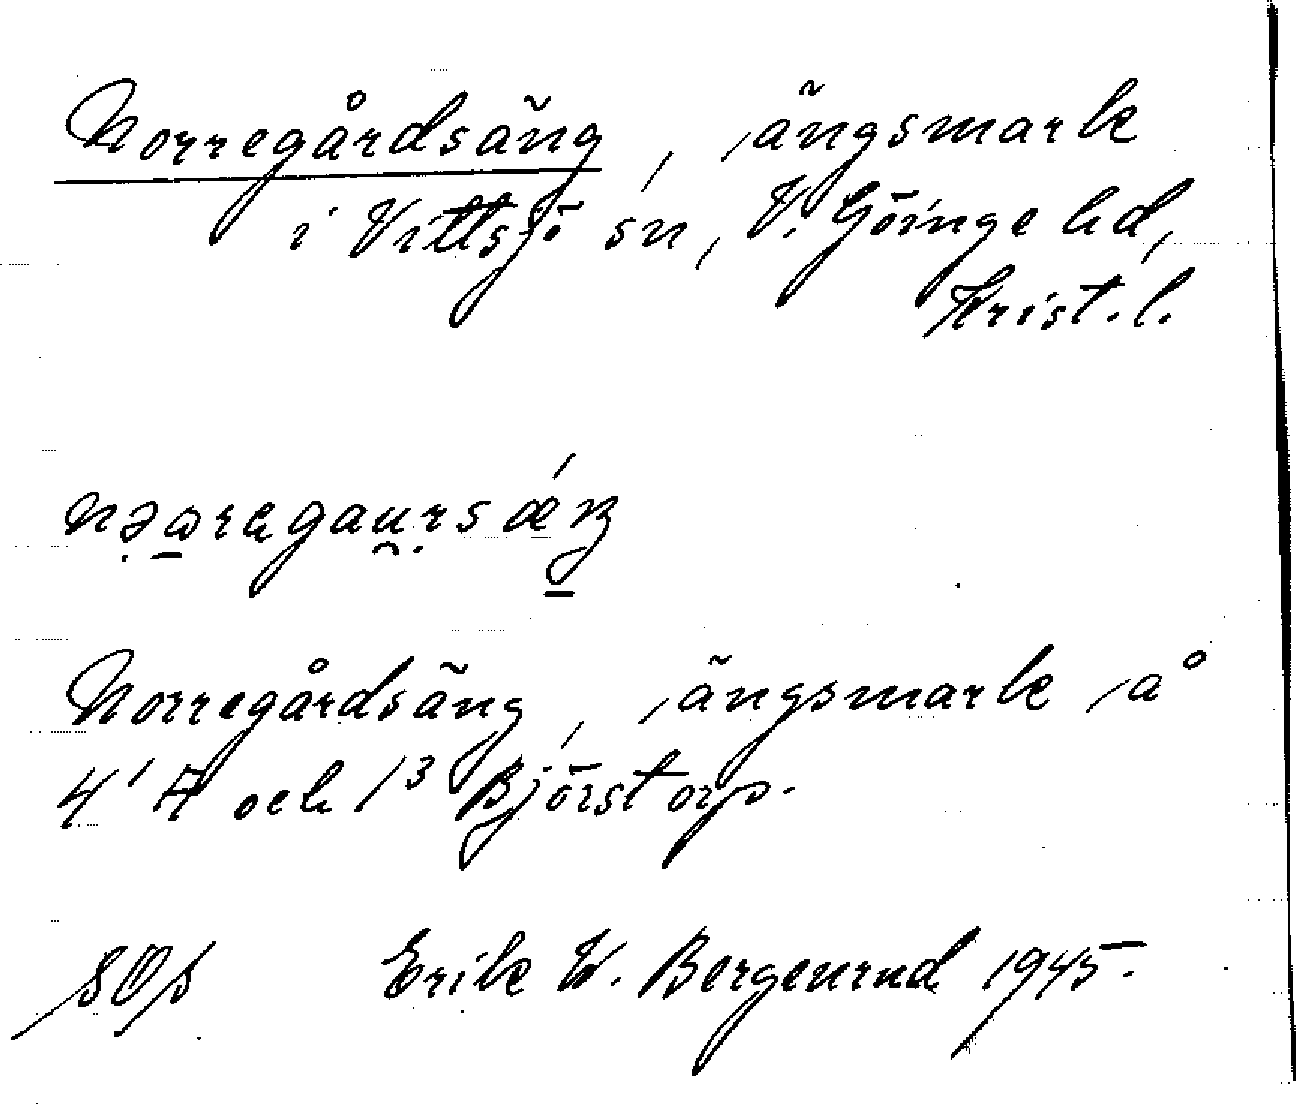 Norregårdsäng, ängsmark
i Vittsjö sn, V. Göinge hd,
Krist. l.
Norregårdsäng, ängsmark å
4¹ A och 1³ Björstorp.
SOS Erik W. Bergenrud 1945.